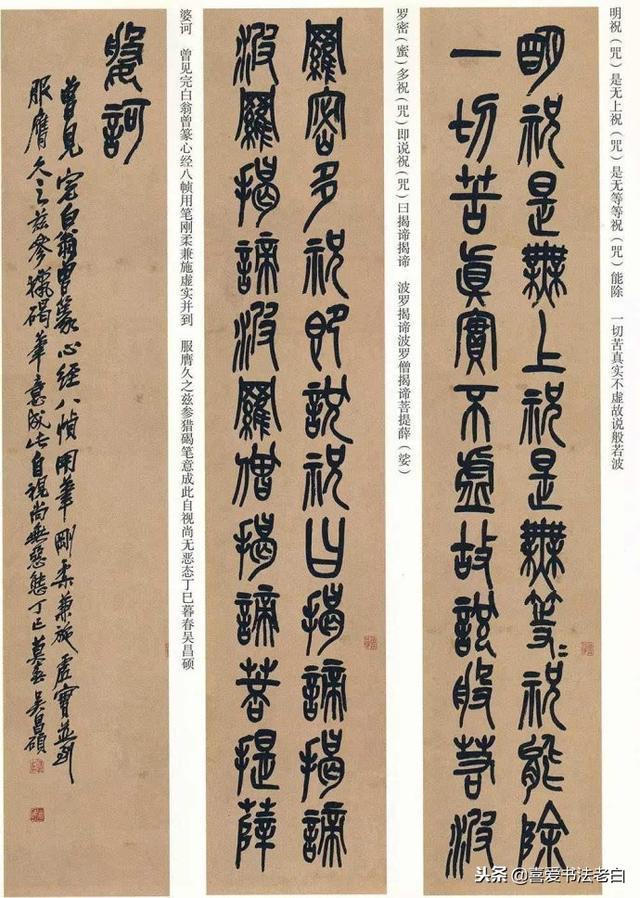 明祝（咒）是无上祝（咒）是无等等祝（咒）能除　一切苦真实不虚故说般若波
明祝是無上祝是無等〻祝能除
一切苦眞實不虛故說般若波
罗密（蜜）多祝（咒）即说祝（咒）曰揭谛揭谛　波罗揭谛波罗僧揭谛菩提薛（娑）
羅密多祝即說祝曰揭諦揭諦
波羅揭諦波羅僧揭諦菩提薛
婆诃　曾见完白翁曾篆心经八帧用笔刚柔兼施虚实并到　服膺久之兹参猎碣笔意成此自视尚无恶态丁巳暮春吴昌硕
婆訶
曾見完白翁曾篆心經八幀用筆剛柔兼施虛實並到
服膺久之茲參獵碣筆意成此自視尚無惡態丁巳莫春吳昌碩
头条 @喜爱书法老白